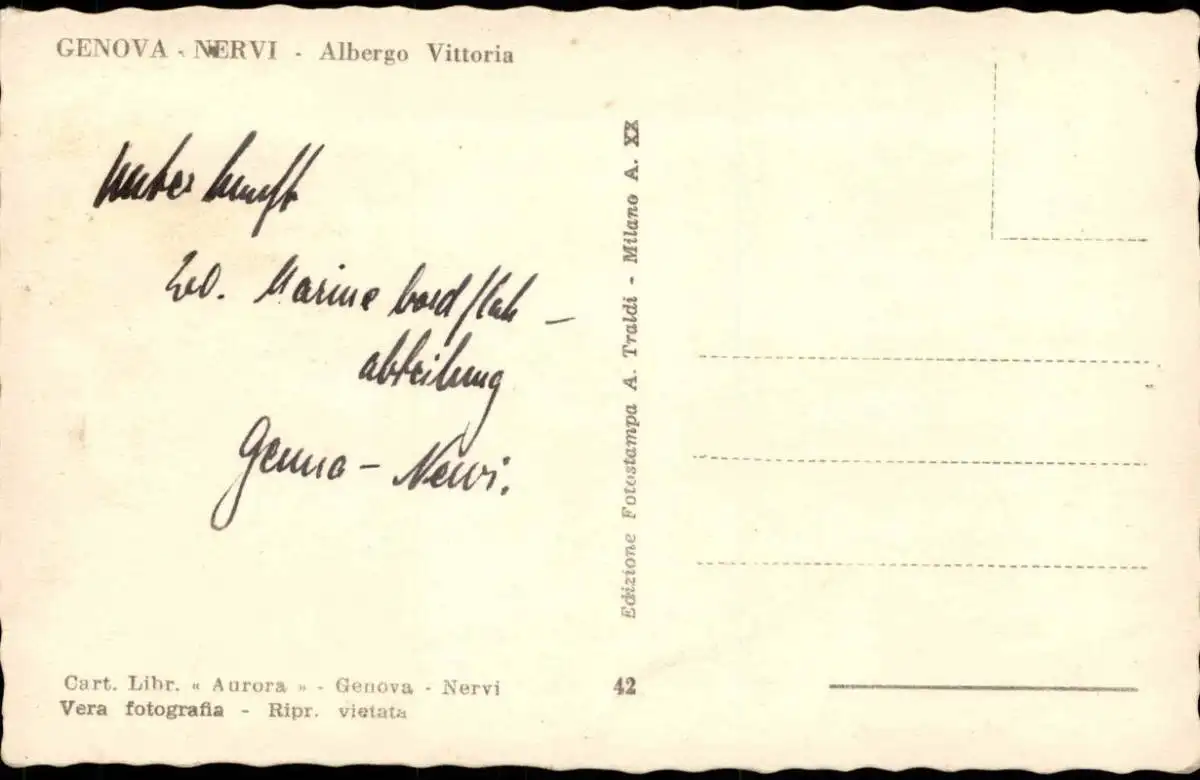 GENOVA - NERVI - Albergo Vittoria
Unterkunft
Marine bordflak -
abteilung
Genua - Nervi.
Edizione Fotostampa A. Traldi - Milano A. XX
Cart. Libr. « Aurora » - Genova - Nervi
Vera fotografia - Ripr. vietata
42